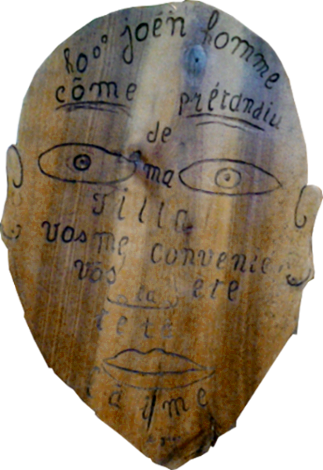 hooo joèn homme
côme prétandiu
de
ma
filla
vos me convenie
vos ete
la
tete